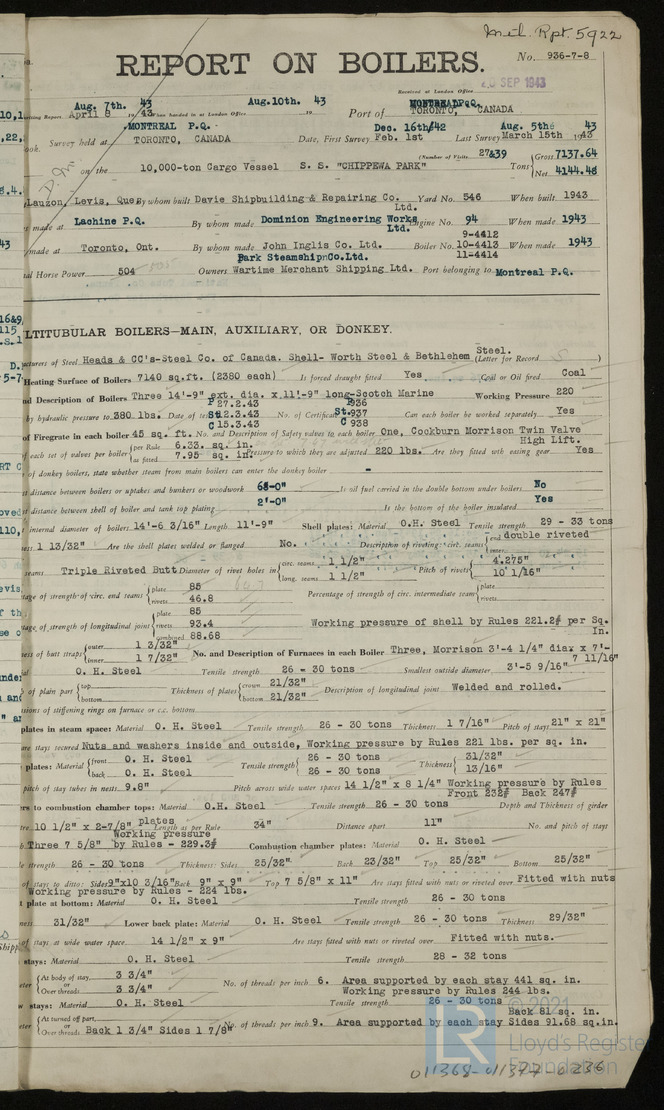 Mtl. Rpt. 5922
REPORT ON BOILERS.
No. 936-7-8
Received at London Office
20 SEP 1943
Aug. 7th. 43 Aug.10th. 43 MONTREAL P.Q.
Writing Report April 8 1943 When handed in at London Office 19 Port of TORONTO, CANADA
MONTREAL P.Q. Dec. 16th/42 Aug. 5th 43
Survey held at TORONTO, CANADA Date, First Survey Feb. 1st Last Survey March 15th 1943
(Number of Visits 27&39
on the 10,000-ton Cargo Vessel S. S. "CHIPPEWA PARK" Tons { Gross 7137.64
Net 4144.48
Lauzon, Levis, Que. By whom built Davie Shipbuilding & Repairing Co. Ltd. Yard No. 546 When built 1943
made at Lachine P.Q. By whom made Dominion Engineering Works Ltd. Engine No. 94 When made 1943
made at Toronto, Ont. By whom made John Inglis Co. Ltd. Boiler No. 9-4412 10-4413 11-4414 When made 1943
Park Steamship Co.Ltd.
Horse Power 504 Owners Wartime Merchant Shipping Ltd. Port belonging to Montreal P.Q.
LTITUBULAR BOILERS—MAIN, AUXILIARY, OR DONKEY.
cturers of Steel Heads & CC's-Steel Co. of Canada. Shell- Worth Steel & Bethlehem Steel. (Letter for Record S )
Heating Surface of Boilers 7140 sq.ft. (2380 each) Is forced draught fitted Yes Coal or Oil fired Coal
nd Description of Boilers Three 14'-9" ext. dia. x 11'-9" long-Scotch Marine Working Pressure 220
P 27.2.43 P936
by hydraulic pressure to 380 lbs. Date of test St 2.3.43 No. of Certificate St.937 Can each boiler be worked separately Yes
C 15.3.43 C 938
of Firegrate in each boiler 45 sq. ft. No. and Description of Safety valves to each boiler One, Cockburn Morrison Twin Valve High Lift.
of each set of valves per boiler { per Rule 6.33. sq. in.
as fitted 7.95 sq. in. Pressure to which they are adjusted 220 lbs. Are they fitted with easing gear Yes
of donkey boilers, state whether steam from main boilers can enter the donkey boiler -
st distance between boilers or uptakes and bunkers or woodwork 68-0" Is oil fuel carried in the double bottom under boilers No
st distance between shell of boiler and tank top plating 2'-0" Is the bottom of the boiler insulated Yes
internal diameter of boilers 14'-6 3/16" Length 11'-9" Shell plates: Material O.H. Steel Tensile strength 29 - 33 tons
ess 1 13/32" Are the shell plates welded or flanged No. Description of riveting: circ. seams { end double riveted
inter.
seams Triple Riveted Butt Diameter of rivet holes in { circ. seams 1 1/2"
long. seams 1 1/2" Pitch of rivets { 4.275"
10 1/16"
age of strength of circ. end seams { plate 85
rivets 46.8 Percentage of strength of circ. intermediate seam { plate
rivets
age of strength of longitudinal joint { plate 85
rivets 93.4
combined 88.68 Working pressure of shell by Rules 221.2# per Sq. In.
ess of butt straps { outer 1 3/32"
inner 1 7/32" No. and Description of Furnaces in each Boiler Three, Morrison 3'-4 1/4" dia. x 7'-7 11/16"
O. H. Steel Tensile strength 26 - 30 tons Smallest outside diameter 3'-5 9/16"
of plain part { top
bottom Thickness of plates { crown 21/32"
bottom 21/32" Description of longitudinal joint Welded and rolled.
sions of stiffening rings on furnace or c.c. bottom
plates in steam space: Material O. H. Steel Tensile strength 26 - 30 tons Thickness 1 7/16" Pitch of stays 21" x 21"
are stays secured Nuts and washers inside and outside, Working pressure by Rules 221 lbs. per sq. in.
plates: Material { front O. H. Steel
back O. H. Steel Tensile strength { 26 - 30 tons
26 - 30 tons Thickness { 31/32"
13/16"
pitch of stay tubes in nests 9.8" Pitch across wide water spaces 14 1/2" x 8 1/4" Working pressure by Rules Front 232# Back 247#
rs to combustion chamber tops: Material O.H. Steel Tensile strength 26 - 30 tons Depth and Thickness of girder
10 1/2" x 2-7/8" plates Length as per Rule 34" Distance apart 11" No. and pitch of stays
Three 7 5/8" Working pressure by Rules - 229.3# Combustion chamber plates: Material O. H. Steel
strength 26 - 30 tons Thickness: Sides 25/32" Back 23/32" Top 25/32" Bottom 25/32"
of stays to ditto: Sides 9"x10 3/16" Back 9" x 9" Top 7 5/8" x 11" Are stays fitted with nuts or riveted over Fitted with nuts
Working pressure by Rules - 224 lbs.
plate at bottom: Material O. H. Steel Tensile strength 26 - 30 tons
31/32" Lower back plate: Material O. H. Steel Tensile strength 26 - 30 tons Thickness 29/32"
of stays at wide water space 14 1/2" x 9" Are stays fitted with nuts or riveted over Fitted with nuts.
stays: Material O. H. Steel Tensile strength 28 - 32 tons
{ At body of stay 3 3/4"
or Over threads 3 3/4" No. of threads per inch 6. Area supported by each stay 441 sq. in.
Working pressure by Rules 244 lbs.
stays: Material O. H. Steel Tensile strength 26 - 30 tons
{ At turned off part, or Over threads Back 1 3/4" Sides 1 7/8" No. of threads per inch 9. Area supported by each stay Back 81 sq. in. Sides 91.68 sq.in.
© 2021
Lloyd's Register
Foundation
011368-011377-0236